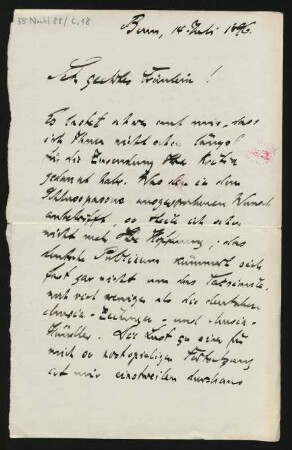 55 Nachl 88 / C,18
Bonn, 14 Juli 1896.
Sehr geehrtes Fräulein!
Es lastet etwas auf mir, dass
ich Ihnen nicht schon längst
für die Zusendung Ihrer
gedankt habe. Was den in dem
Schlusspassus ausgesprochenen Wunsch
anbetrifft, so ich schon
nicht mehr die Hoffnung; das
deutsche Publicum kümmert sich
fast gar nicht um das
noch viel weniger als die deutschen
Musik-Zeitungen - und Musik-
Händler. Die Lust zu einer für
mich so kostspieligen Fortsetzung
ist mir einstweilen durchaus